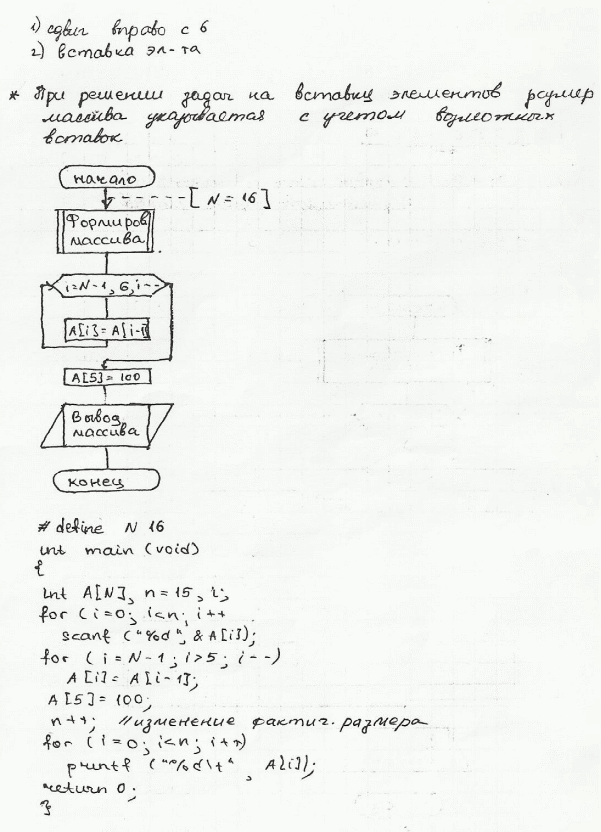 1) сдвиг вправо с 6
2) вставка эл-та
* При решении задач на вставку элементов размер
массива указывается с учетом возможных
вставок
начало
[ N = 16 ]
Формиров
массива
i=N-1, 6, i--
A[i]=A[i-1]
A[5]=100
Вывод
массива
конец
# define N 16
int main (void)
{
int A[N], n=15, i;
for (i=0; i<n; i++
scanf ("%d", &A[i]);
for (i=N-1; i>5; i--)
A[i]=A[i-1];
A[5]=100;
n++; //изменение фактич. размера
for (i=0; i<n; i++)
printf ("%d\t", A[i]);
return 0;
}